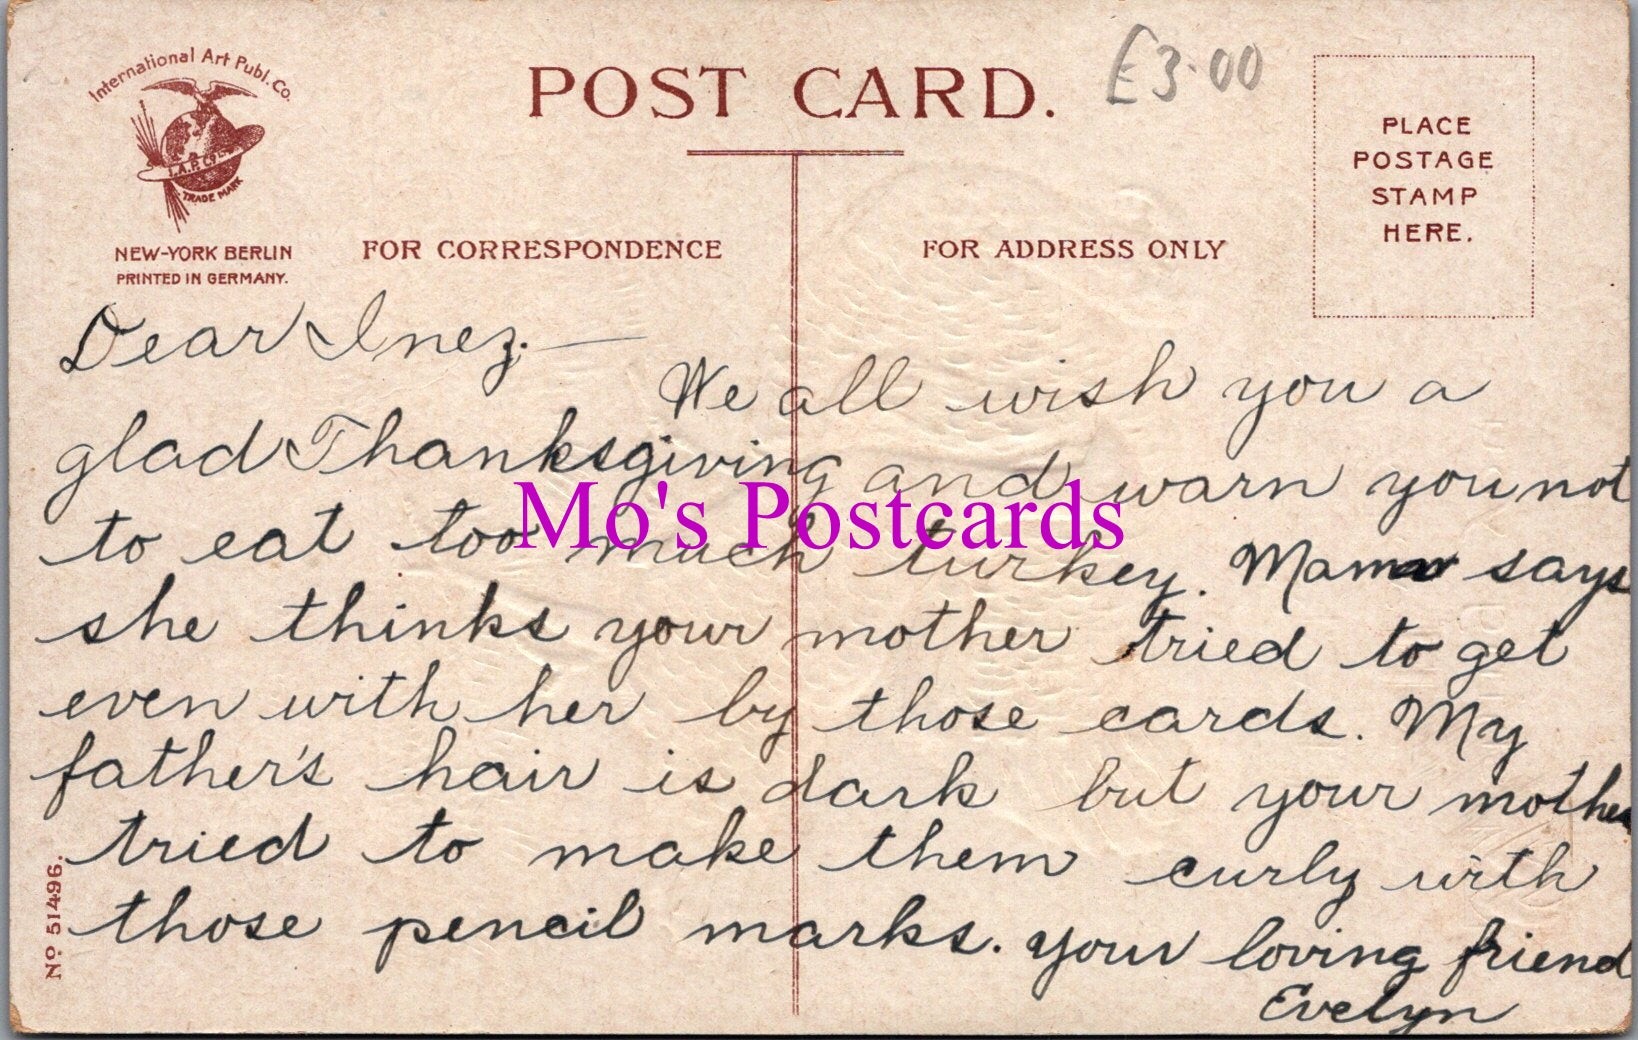 International Art Publ. Co.
I.A.P. Co.
TRADE MARK
NEW-YORK BERLIN
PRINTED IN GERMANY.
POST CARD.
£3.00
PLACE
POSTAGE
STAMP
HERE.
FOR CORRESPONDENCE
FOR ADDRESS ONLY
Dear Inez:—
We all wish you a
glad Thanksgiving and warn you not
to eat too much turkey. Mama says
she thinks your mother tried to get
even with her by those cards. My
father's hair is dark but your mother
tried to make them curly with
those pencil marks. your loving friend
Evelyn
Mo's Postcards
Nº 51496.